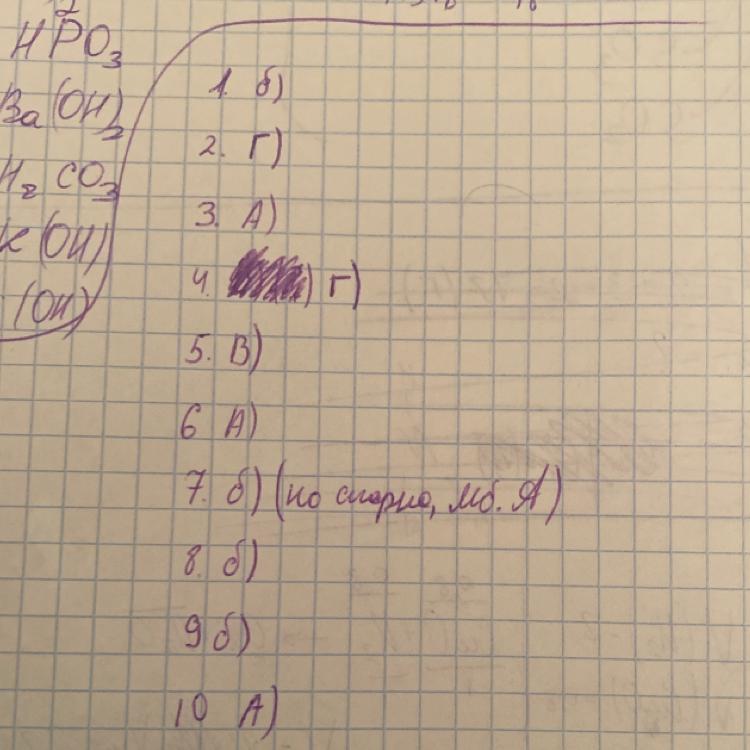 HPO3
Ba(OH)2
H2CO3
K(OH)
(OH)
1. б)
2. Г)
3. А)
4. ) Г)
5. В)
6 А)
7. б) (но спорно, мб. А)
8. б)
9 б)
10 А)